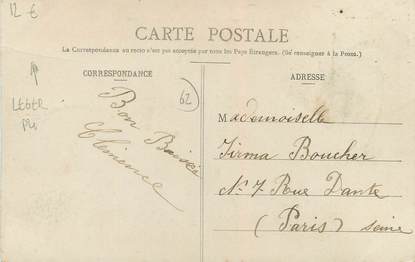 12 €
CARTE POSTALE
La Correspondance au recto n'est pas acceptée par tous les Pays Étrangers. (Se renseigner à la Poste.)
CORRESPONDANCE
ADRESSE
62
LEGER
Pli
Bon Baiser
Clémence
Mademoiselle
Firma Boucher
N° 7 Rue Dante
(Paris) Seine